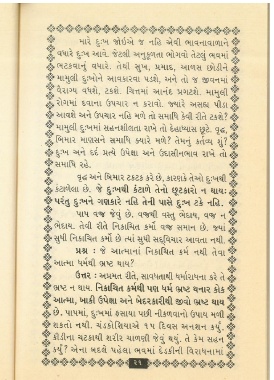 મારે દુઃખ જોઈએ જ નહિ એવી ભાવનાવાળાને
વધારે દુઃખ આવે. જેટલી અનુકૂળતા ભોગવો તેટલું ભવમાં
ભટકવાનું વધારે. તેથી સુખ, પ્રમાદ, આળસ છોડીને
મામુલી દુઃખોને આવકારવા પડશે, અને તો જ જીવનમાં
વૈરાગ્ય વધશે, ટકશે. ચિત્તમાં આનંદ પ્રગટશે. મામુલી
રોગમાં દવાના ઉપચાર ન કરાવો. જ્યારે અસહ્ય પીડા
આવશે અને ઉપચાર નહિ મળે તો સમાધિ કેવી રીતે ટકશે?
મામુલી દુઃખમાં સહનશીલતા રાખે તો દેહાધ્યાસ છૂટે. વૃદ્ધ,
બિમાર માણસને સમાધિ ક્યારે મળે? તેમનું કર્તવ્ય શું?
દુઃખ અને દર્દ પ્રત્યે ઉપેક્ષા અને ઉદાસીનભાવ રાખે તો
સમાધિ રહે.
વૃદ્ધ અને બિમાર ટકટક કરે છે, કારણકે તેઓ દુઃખથી
કંટાળેલા છે. જે દુઃખથી કંટાળે તેનો છૂટકારો ન થાય
પરંતુ દુઃખને ગણકારે નહિ તેની પાસે દુઃખ ટકે નહિ.
પાપ વજ્ર જેવું છે. વજ્રથી વસ્તુ ભેદાય, વજ્ર ન
ભેદાય. તેવી રીતે નિકાચિત કર્મો વજ્ર સમાન છે. જ્યાં
સુધી નિકાચિત કર્મો છે ત્યાં સુધી સદ્‌વિચાર આવતા નથી.
પ્રશ્ન : જે આત્માનાં નિકાચિત કર્મ નથી તેવા
આત્મા ધર્મથી ભ્રષ્ટ થાય?
ઉત્તર : અપ્રમત રીતે, સાવધતાથી ધર્મારાધના કરે તે
ભ્રષ્ટ ના થાય. નિકાચિત કર્મથી પણ ધર્મ ભ્રષ્ટ થનાર કોક
આત્મા, બાકી ઉપેક્ષા અને બેદરકારીથી જીવો ભ્રષ્ટ થાય
છે. પાપમાં, દુઃખમાં ફસાયા પછી નીકળવાનો ઉપાય મળી
શકતો નથી. ચંડકોસિયાએ ૧૫ દિવસ અનશન કર્યું.
કીડીના ચટકાથી શરીર ચાળણી જેવું થયું. તે કેમ સહન
કર્યું? એના બદલે પહેલા ભવમાં દેડકીની વિરાધનામાં
૨૧